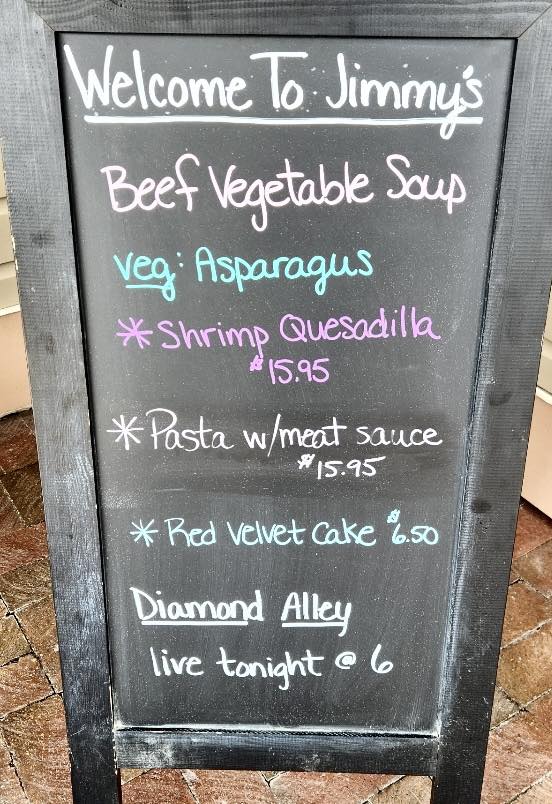 Welcome To Jimmy's
Beef Vegetable Soup
veg: Asparagus
* Shrimp Quesadilla
$15.95
* Pasta w/meat sauce
$15.95
* Red Velvet Cake $6.50
Diamond Alley
live tonight @ 6